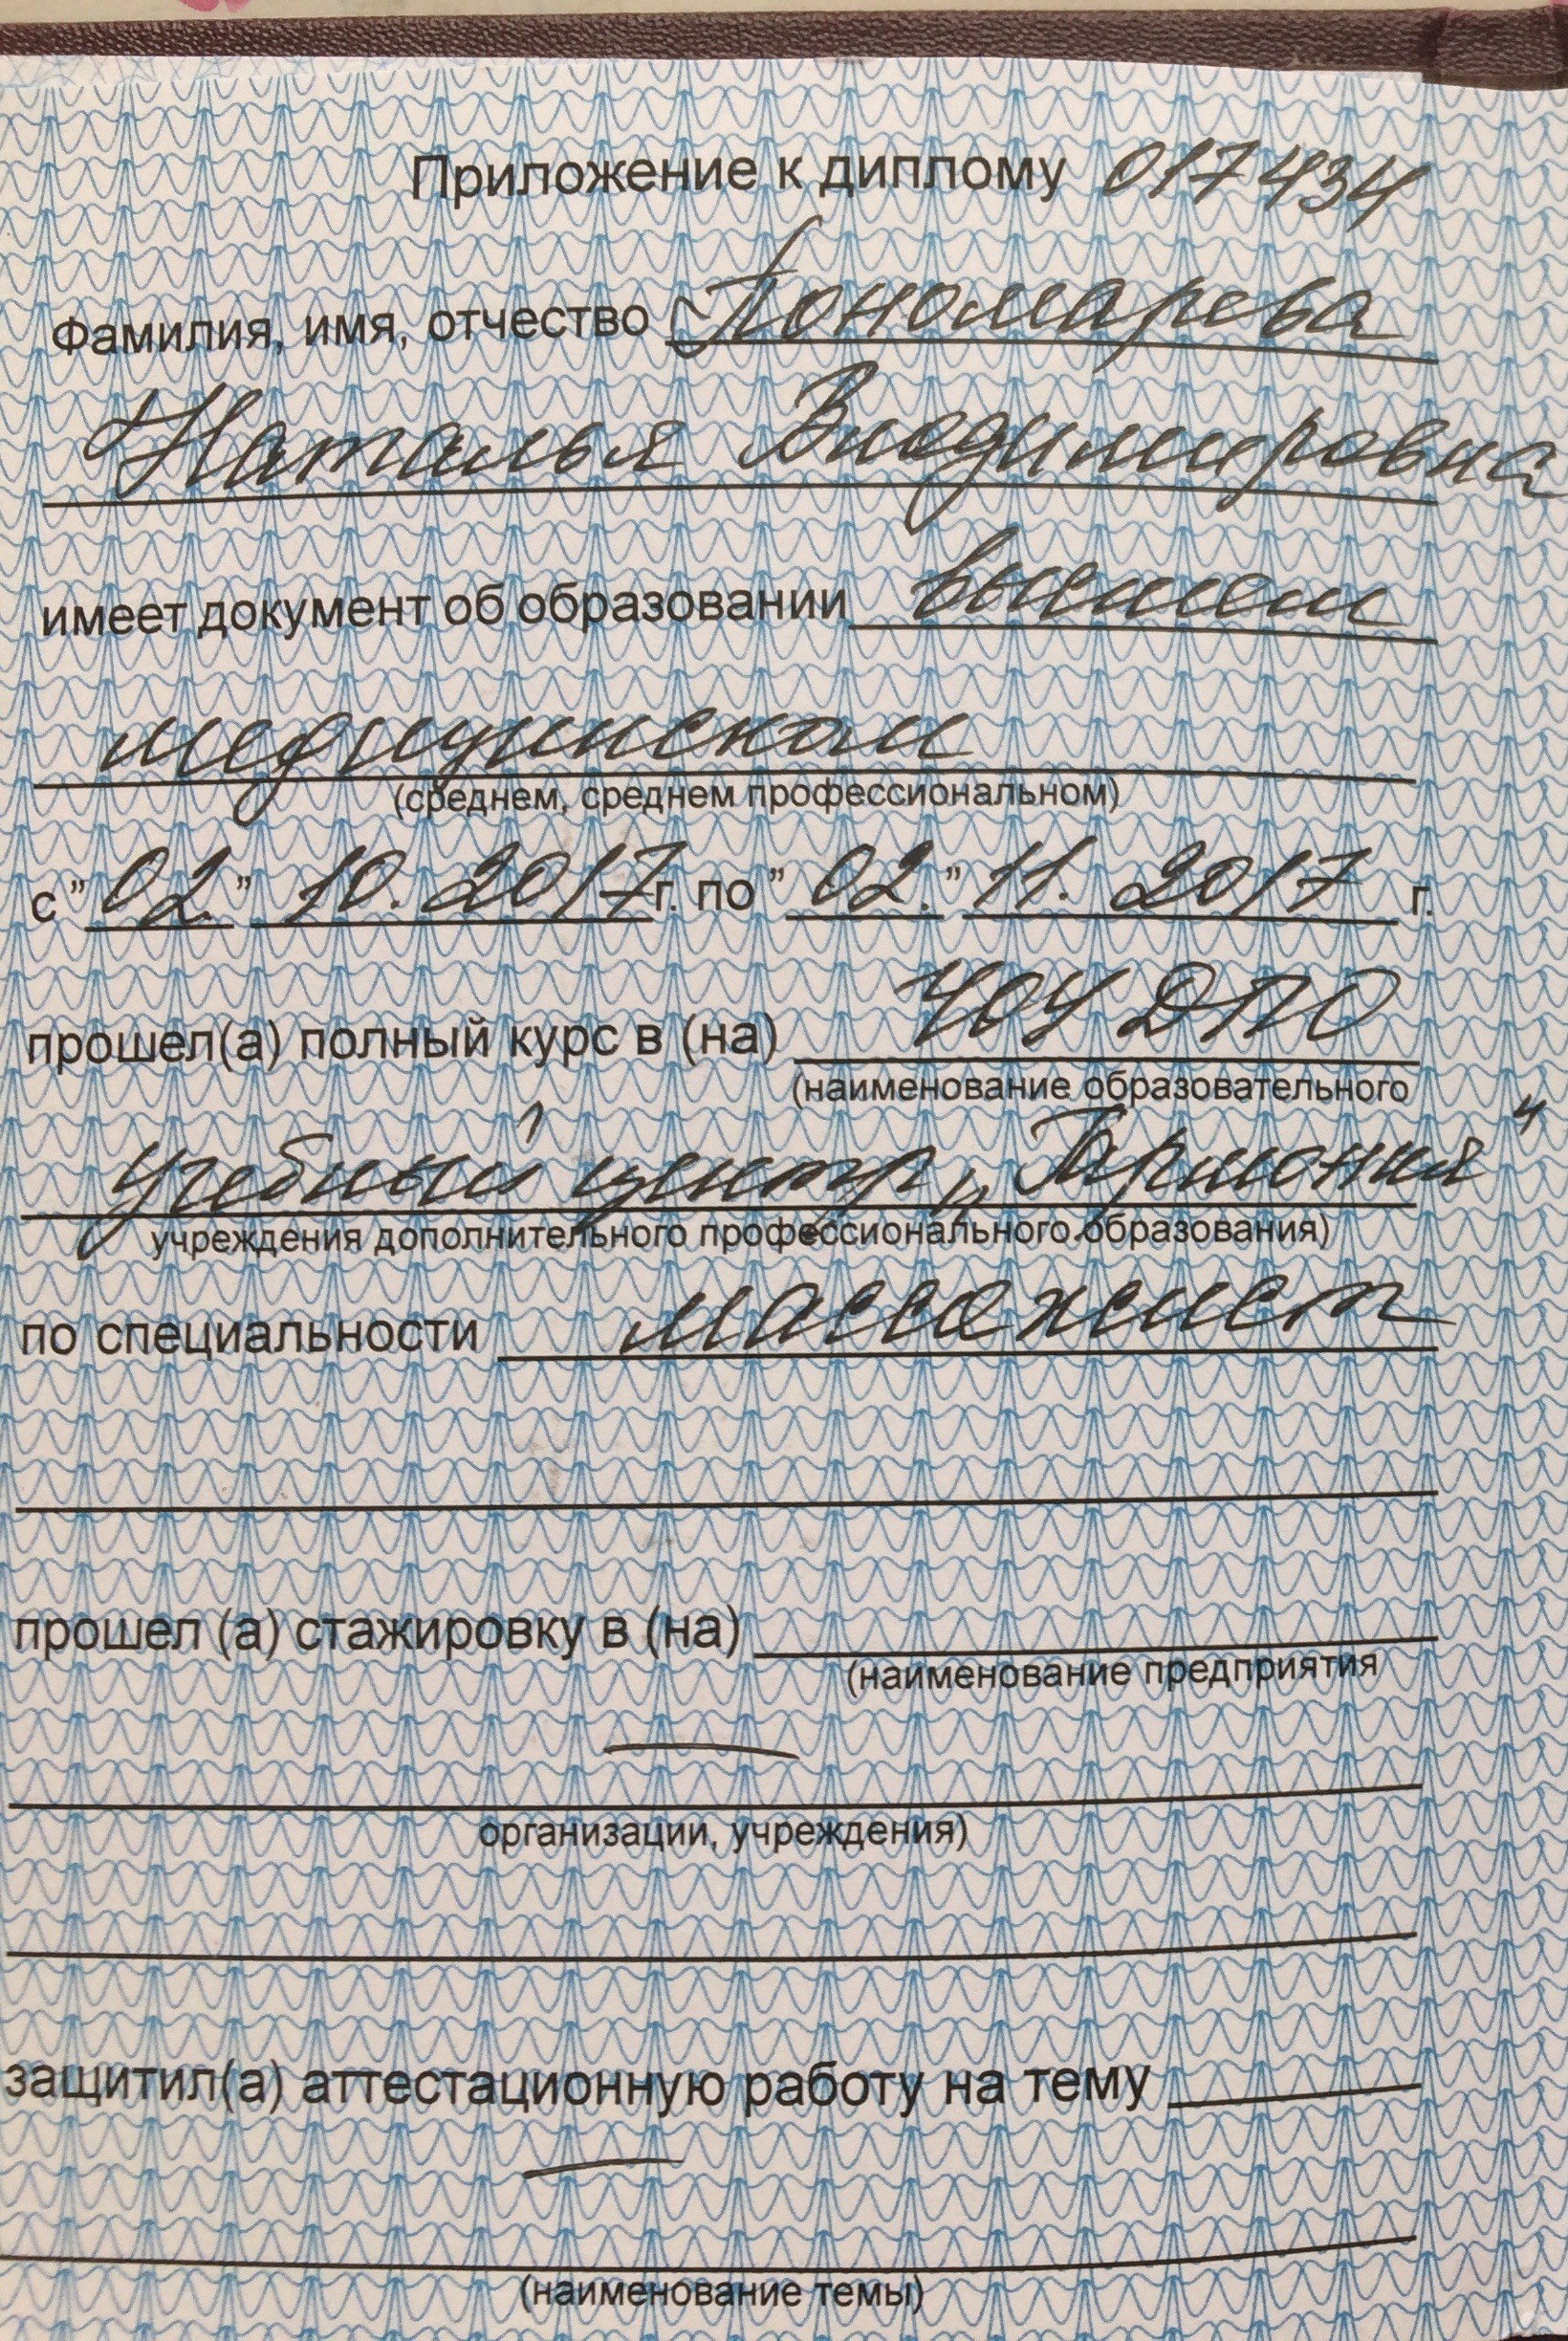 Приложение к диплому 017434
Фамилия, имя, отчество Пономарева
Наталья Владимировна
имеет документ об образовании высшем
медицинском
(среднем, среднем профессиональном)
с "02." 10. 2017г. по "02." 11. 2017 г.
прошел(а) полный курс в (на) ЧОУ ДПО
(наименование образовательного
Учебный центр „Гармония"
учреждения дополнительного профессионального образования)
по специальности массажист
прошел (а) стажировку в (на)
(наименование предприятия
—
организации, учреждения)
защитил(а) аттестационную работу на тему
—
(наименование темы)